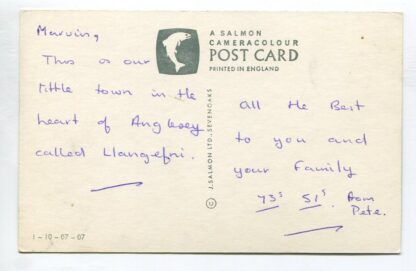 Marving,
This is our
little town in the
heart of Anglesey
called Llangefni.
A SALMON
CAMERACOLOUR
POST CARD
PRINTED IN ENGLAND
J. SALMON LTD., SEVENOAKS
©
All the Best
to you and
your Family
73s 51s from
Pete.
1-10-07-07